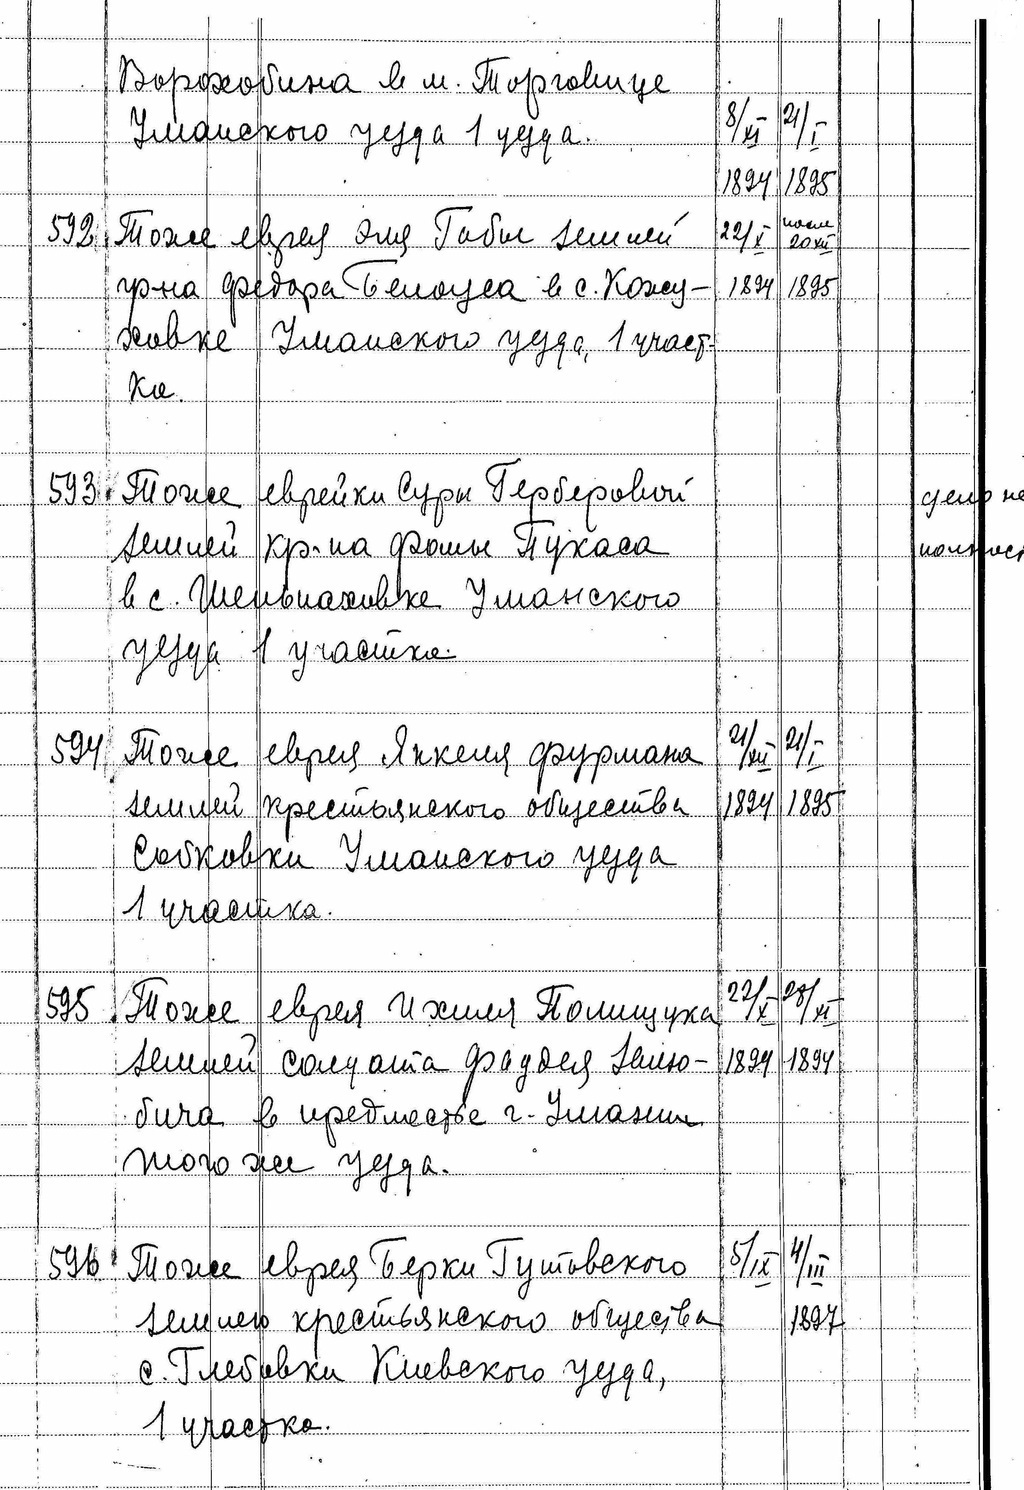 Ворохобина в м. Торговице
Уманского уезда 1 уезда. 8/XI 21/I
1894 1895
592. Тоже еврея Эля Габы землей 22/X после 20 XII
гр-на Федора Белоуса в с. Кожу- 1894 1895
ховке Уманского уезда, 1 участ-
ка.
593. Тоже еврейки Суры Герберовой дело не
землей кр-на Фомы Пукаса полност
в с. Шельпаховке Уманского
уезда 1 участка.
594. Тоже еврея Янкеля Фурмана 21/XII 21/I
землей крестьянского общества 1894 1895
Собковки Уманского уезда
1 участка.
595. Тоже еврея Ихиля Полищука 22/X 28/XI
землей солдата Фаддея Зелю- 1894 1894
бича в предместье г. Умани
того же уезда.
596. Тоже еврея Берки Гутовского 5/IX 4/III
землею крестьянского общества 1897
с. Глебовки Киевского уезда,
1 участка.